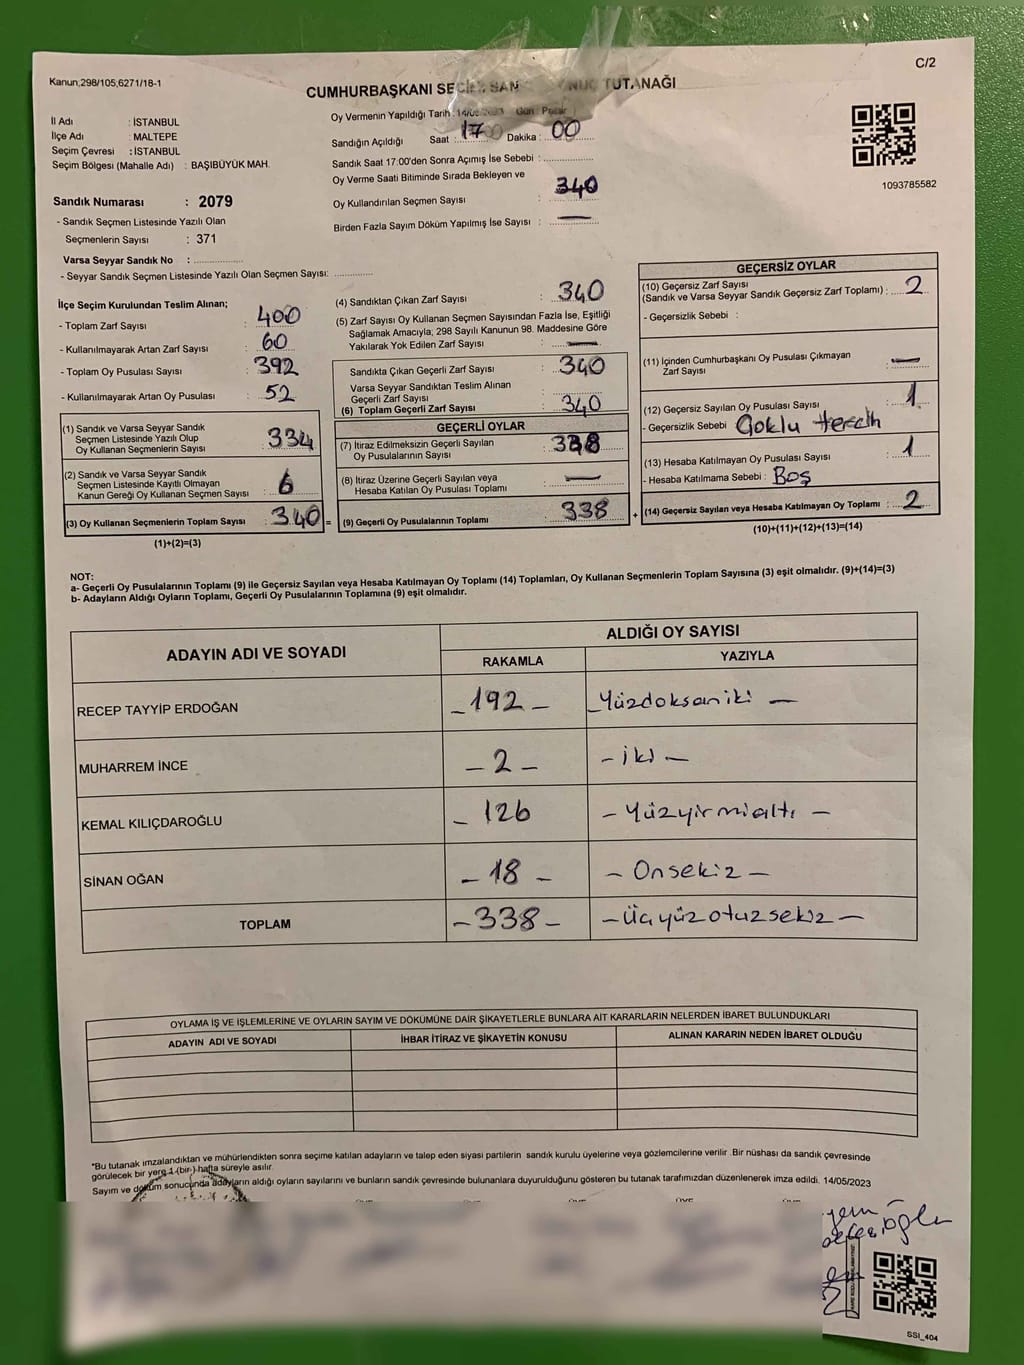 C/2
Kanun,298/105,6271/18-1
CUMHURBAŞKANI SEÇİM SAN TUTANAĞI
İl Adı : İSTANBUL
İlçe Adı : MALTEPE
Seçim Çevresi : İSTANBUL
Seçim Bölgesi (Mahalle Adı) : BAŞIBÜYÜK MAH.
Sandık Numarası : 2079
- Sandık Seçmen Listesinde Yazılı Olan
Seçmenlerin Sayısı : 371
Varsa Seyyar Sandık No :
- Seyyar Sandık Seçmen Listesinde Yazılı Olan Seçmen Sayısı:
Oy Vermenin Yapıldığı Tarih : 14/05/2023 Gün : Pazar
Sandığın Açıldığı Saat : 17 Dakika : 00
Sandık Saat 17:00'den Sonra Açımış İse Sebebi :
Oy Verme Saati Bitiminde Sırada Bekleyen ve
Oy Kullandırılan Seçmen Sayısı : 340
Birden Fazla Sayım Döküm Yapılmış İse Sayısı : —
1093785582
İlçe Seçim Kurulundan Teslim Alınan;
- Toplam Zarf Sayısı : 400
- Kullanılmayarak Artan Zarf Sayısı : 60
- Toplam Oy Pusulası Sayısı : 392
- Kullanılmayarak Artan Oy Pusulası : 52
(1) Sandık ve Varsa Seyyar Sandık
Seçmen Listesinde Yazılı Olup
Oy Kullanan Seçmenlerin Sayısı : 334
(2) Sandık ve Varsa Seyyar Sandık
Seçmen Listesinde Kayıtlı Olmayan
Kanun Gereği Oy Kullanan Seçmen Sayısı : 6
(3) Oy Kullanan Seçmenlerin Toplam Sayısı : 340 =
(1)+(2)=(3)
(4) Sandıktan Çıkan Zarf Sayısı : 340
(5) Zarf Sayısı Oy Kullanan Seçmen Sayısından Fazla İse, Eşitliği
Sağlamak Amacıyla; 298 Sayılı Kanunun 98. Maddesine Göre
Yakılarak Yok Edilen Zarf Sayısı : —
Sandıkta Çıkan Geçerli Zarf Sayısı : 340
Varsa Seyyar Sandıktan Teslim Alınan
Geçerli Zarf Sayısı :
(6) Toplam Geçerli Zarf Sayısı : 340
GEÇERLİ OYLAR
(7) İtiraz Edilmeksizin Geçerli Sayılan
Oy Pusulalarının Sayısı : 338
(8) İtiraz Üzerine Geçerli Sayılan veya
Hesaba Katılan Oy Pusulası Toplamı : —
(9) Geçerli Oy Pusulalarının Toplamı : 338 +
GEÇERSİZ OYLAR
(10) Geçersiz Zarf Sayısı
(Sandık ve Varsa Seyyar Sandık Geçersiz Zarf Toplamı) : 2
- Geçersizlik Sebebi :
(11) İçinden Cumhurbaşkanı Oy Pusulası Çıkmayan
Zarf Sayısı : —
(12) Geçersiz Sayılan Oy Pusulası Sayısı : 1
- Geçersizlik Sebebi Çoklu tercih
(13) Hesaba Katılmayan Oy Pusulası Sayısı : 1
- Hesaba Katılmama Sebebi : Boş
(14) Geçersiz Sayılan veya Hesaba Katılmayan Oy Toplamı : 2
(10)+(11)+(12)+(13)=(14)
NOT:
a- Geçerli Oy Pusulalarının Toplamı (9) ile Geçersiz Sayılan veya Hesaba Katılmayan Oy Toplamı (14) Toplamları, Oy Kullanan Seçmenlerin Toplam Sayısına (3) eşit olmalıdır. (9)+(14)=(3)
b- Adayların Aldığı Oyların Toplamı, Geçerli Oy Pusulalarının Toplamına (9) eşit olmalıdır.
ADAYIN ADI VE SOYADI ALDIĞI OY SAYISI
RAKAMLA YAZIYLA
RECEP TAYYİP ERDOĞAN - 192 - - Yüzdoksaniki -
MUHARREM İNCE - 2 - - iki -
KEMAL KILIÇDAROĞLU - 126 - Yüzyirmialtı -
SİNAN OĞAN - 18 - - Onsekiz -
TOPLAM - 338 - - Üçyüzotuzsekiz -
OYLAMA İŞ VE İŞLEMLERİNE VE OYLARIN SAYIM VE DÖKÜMÜNE DAİR ŞİKAYETLERLE BUNLARA AİT KARARLARIN NELERDEN İBARET BULUNDUKLARI
ADAYIN ADI VE SOYADI İHBAR İTİRAZ VE ŞİKAYETİN KONUSU ALINAN KARARIN NEDEN İBARET OLDUĞU
*Bu tutanak imzalandıktan ve mühürlendikten sonra seçime katılan adayların ve talep eden siyasi partilerin sandık kurulu üyelerine veya gözlemcilerine verilir .Bir nüshası da sandık çevresinde
görülecek bir yere 1 (bir) hafta süreyle asılır.
Sayım ve döküm sonucunda adayların aldığı oyların sayılarını ve bunların sandık çevresinde bulunanlara duyurulduğunu gösteren bu tutanak tarafımızdan düzenlenerek imza edildi. 14/05/2023
SSI_404